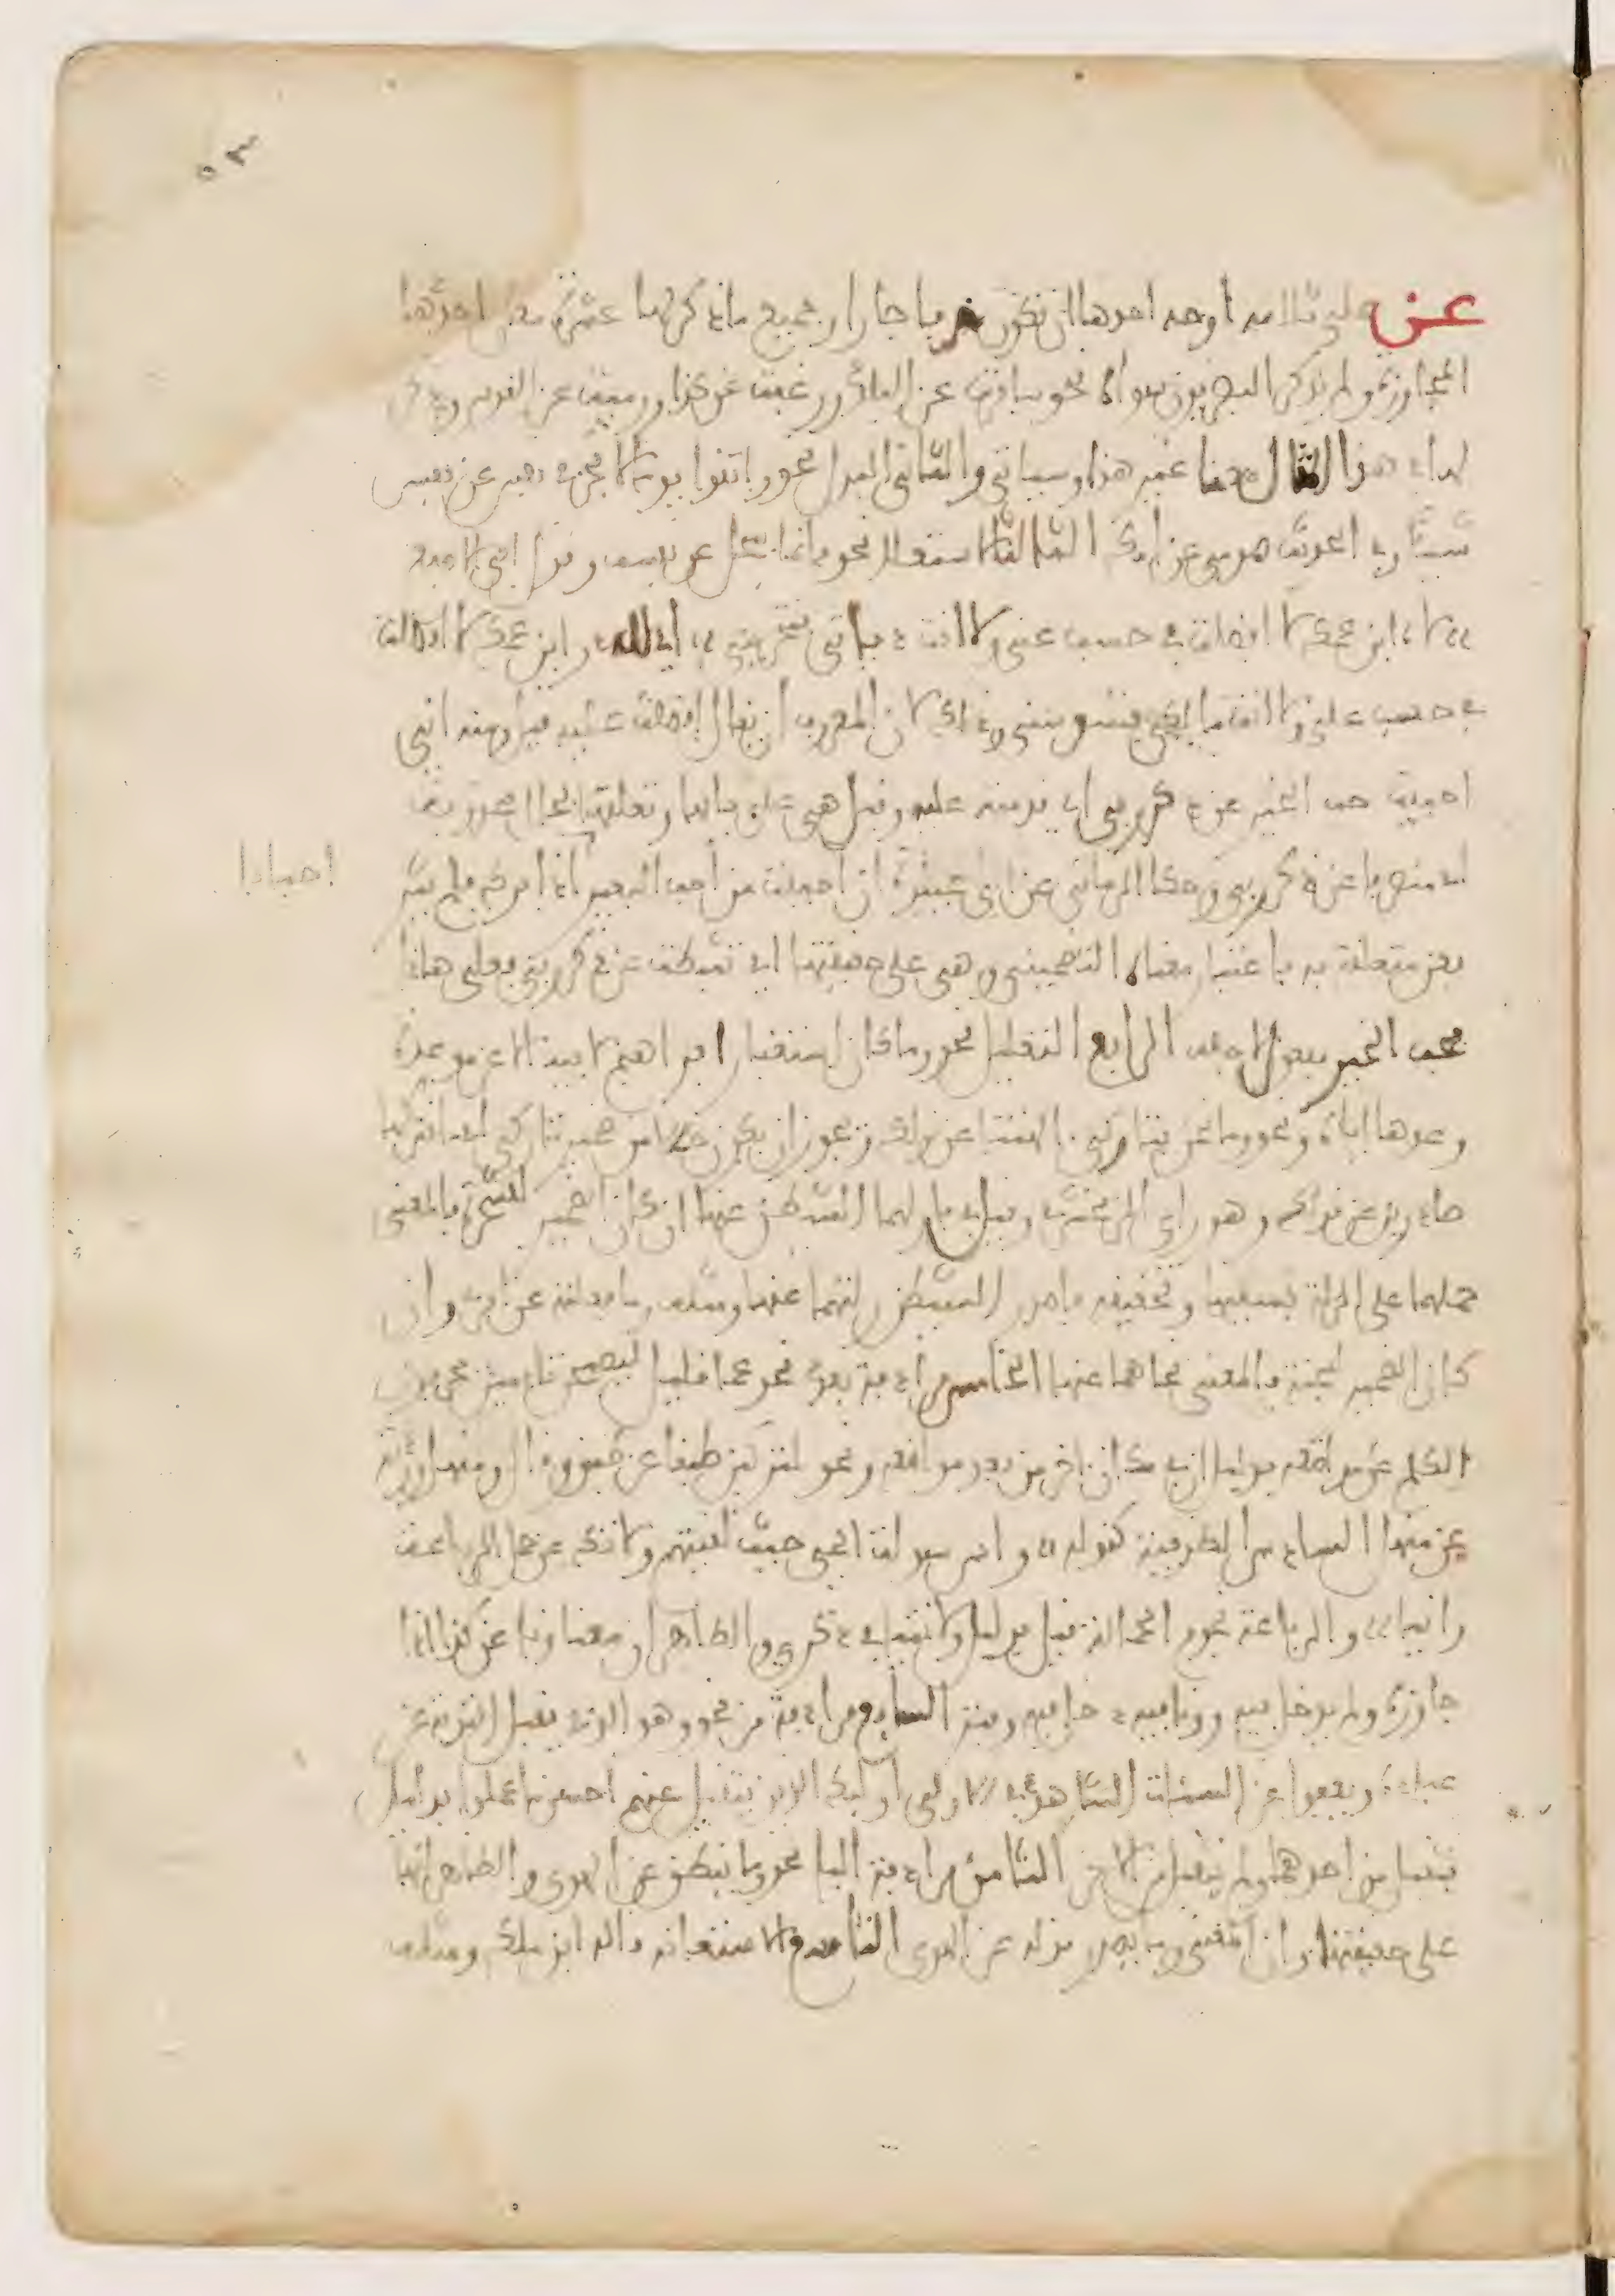 ٥٣
عن على ثلاثة اوجه احدها ان تكون حرفا جارا وجميع ما ذكر لها عشرة معان احدها
المجاوزة ولم يذكر البصريون سواه نحو سافرت عن البلد ورغبت عن كذا ورميت عن القوس وذكر
لها في هذا المثال معنا غير هذا وسياتي والثاني البدل نحو واتقوا يوما لا تجزي نفس عن نفس
شيئا وفي الحديث صومي عن امك الثالث الاستعلاء نحو فانما يبخل عن نفسه وقول ذي الاصبع
لاه ابن عمك لا افضلت في حسب عني ولا انت دياني فتخزوني اي لله در ابن عمك لا افضلت
في حسب علي ولا انت مالكي فتسوسني وذلك لان المعروف ان يقال افضلت عليه قيل ومنه اني
احببت حب الخير عن ذكر ربي اي قدمته عليه وقيل هي على بابها وتعلقها بحال محذوفة
اي منصرفا عن ذكر ربي وحكى الرماني عن ابي عبيدة ان احببت من احب البعير اذا برك فلم يثر
احبابا
فعن متعلقة به باعتبار معناه التضميني وهي على حقيقتها اي تثبطت عن ذكر ربي فعلى هاذا
فحب الخير مفعول لاجله الرابع التعليل نحو وما كان استغفار ابراهيم لابيه الا عن موعدة
وعدها اياه ونحو وما نحن بتاركي الهتنا عن قولك ويجوز ان يكون حالا من ضمير تاركي اي ما نتركها
صادرين عن قولك وهو راي الزمخشري وقال في فازلهما الشيطان عنها ان كان الضمير للشجرة فالمعنى
حملهما على الزلة بسببها وحقيقته اصدر الشيطان زلتهما عنها ومثله وما فعلته عن امري وان
كان الضمير للجنة فالمعنى نحاهما عنها الخامس مرادفة بعد نحو عما قليل ليصبحن نادمين يحرفون
الكلم عن مواضعه بدليل ان في مكان اخر من بعد مواضعه ونحو لتركبن طبقا عن طبق وقال ومنهل وردته
عن منهل السادس الظرفية كقوله واس سراة الحي حيث لقيتهم ولا تك عن حمل الرباعة
وانيا والرباعة نجوم الحمالة قيل بدليل ولا تنيا في ذكري والظاهر ان معنى ونى عن كذا
جاوزه ولم يدخل فيه وونى فيه دخل فيه وفتر السابع مرادفة من نحو وهو الذي يقبل التوبة عن
عباده ويعفوا عن السيئات الشاهد في الاولى اولئك الذين يتقبل عنهم احسن ما عملوا بدليل
فتقبل من احدهما ولم يتقبل من الاخر الثامن مرادفة الباء نحو وما ينطق عن الهوى والظاهر انها
على حقيقتها وان المعنى وما يصدر قوله عن الهوى التاسع الاستعانة قاله ابن ملك ومثله